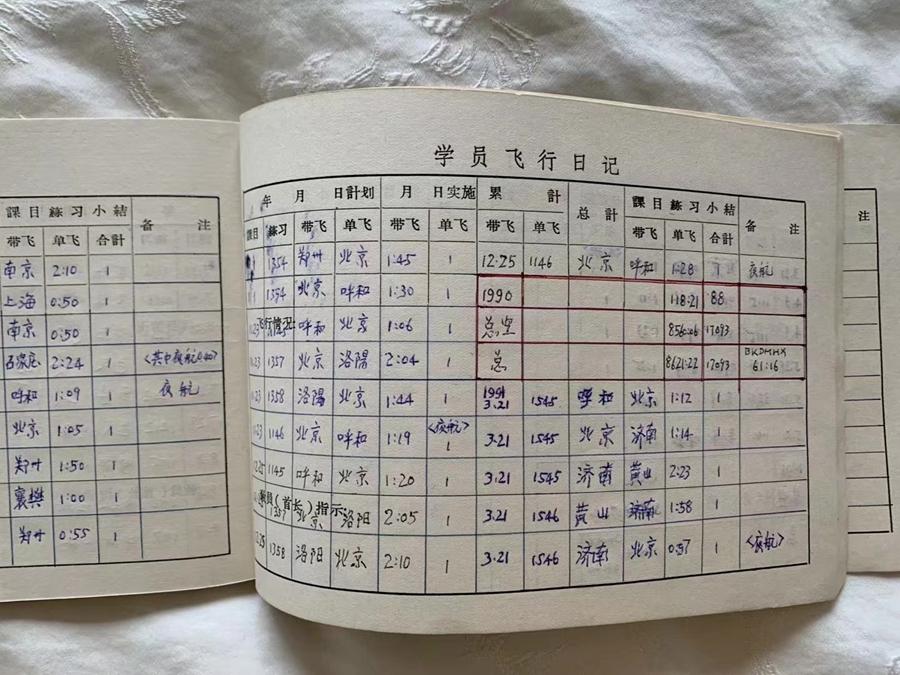 課目練习小結 备 注
带飞 单飞 合計
南京 2:10 1
上海 0:50 1
南京 0:50 1
石家庄 2:24 1
呼和 1:09 1 夜航
北京 1:05 1
郑州 1:50 1
襄樊 1:00 1
郑州 0:55 1
学员飞行日记
年 月 日計划 月 日实施 累 計 总 計 課目練习小結 备 注
課目 練习 带飞 单飞 带飞 单飞 带飞 单飞 带飞 单飞 合計
1354 郑州 北京 1:45 1 12:25 1146 北京 呼和 1:28 1 夜航
1354 北京 呼和 1:30 1 1990 118:21 88
飞行情况: 呼和 北京 1:06 1 总空 17093
12.23 1357 北京 洛陽 2:04 1 总 8621:22 17093 BKDMHX 61:16
12.23 1358 洛陽 北京 1:44 1 1991 3.21 1545 呼和 北京 1:12 1
12.23 1146 北京 呼和 1:19 <夜航> 1 3.21 1545 北京 济南 1:14 1
12.25 1145 呼和 北京 1:20 1 3.21 1545 济南 黄山 2:23 1
教员(首长)指示:
1357 北京 洛阳 2:05 1 3.21 1546 黄山 济南 1:58 1
12.25 1358 洛阳 北京 2:10 1 3.21 1546 济南 北京 0:57 1 <夜航>
注